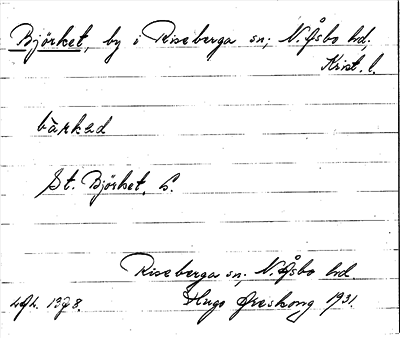 Björket, by i Riseberga sn; N. Åsbo hd,
Krist. l.
bärkəd
St. Björket, L.
Riseberga sn; N. Åsbo hd.
Hugo Areskoug 1931.